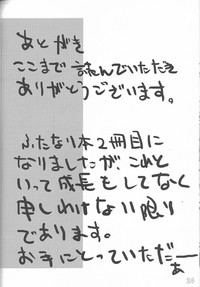 あとがき
ここまで読んでいただき
ありがとうございます。
ふたなり本2冊目に
なりましたが、これと
いって成長もしてなく
申しわけない限り
であります。
お手にとっていただー
ぁ